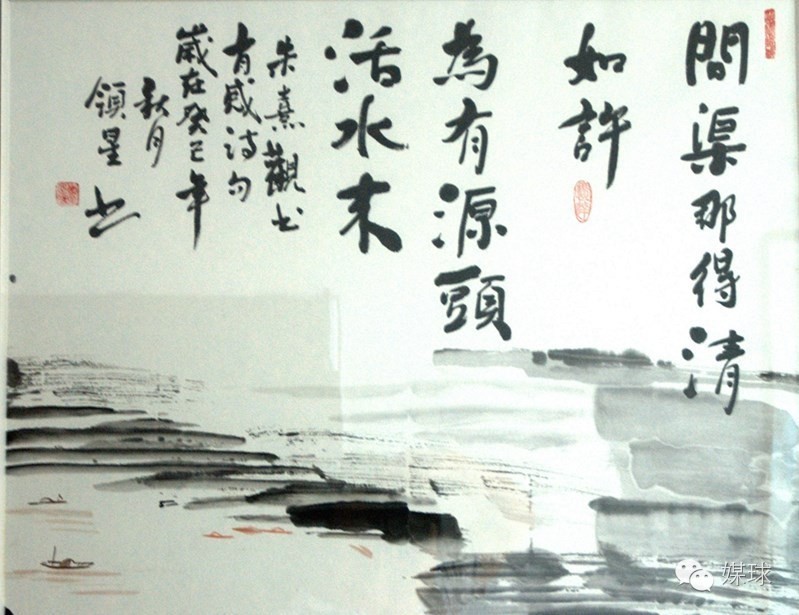 問渠那得清
如許
為有源頭
活水来
朱熹觀书
有感诗句
歲在癸巳年
秋月
領星书
媒球